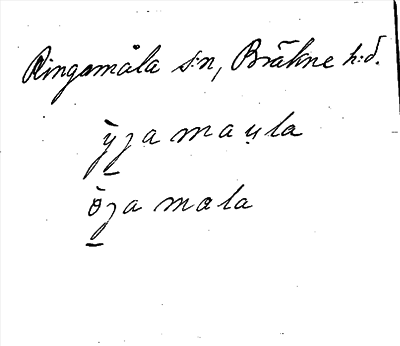 Ringamåla s:n, Bräkne h:d.
ỳja mau̯la
òja mala